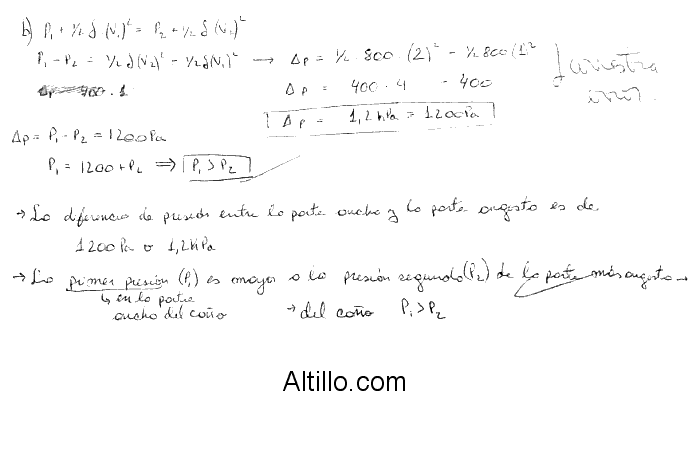 b) P₁ + 1/2 δ (V₁)² = P₂ + 1/2 δ (V₂)²
P₁ - P₂ = 1/2 δ (V₂)² - 1/2 δ (V₁)² → Δp = 1/2 . 800 . (2)² - 1/2 800 (1)²
Δp = 400 . 4 - 400
Δp = 1,2 kPa = 1200 Pa
Δp = P₁ - P₂ = 1200 Pa
P₁ = 1200 + P₂ ⇒ P₁ > P₂
→ La diferencia de presión entre la parte ancha y la parte angosta es de
1200 Pa o 1,2 kPa
→ La primer presión (P₁) es mayor a la presión segunda (P₂) de la parte más angosta →
↳ en la parte
ancha del caño
→ del caño P₁ > P₂
Altillo.com